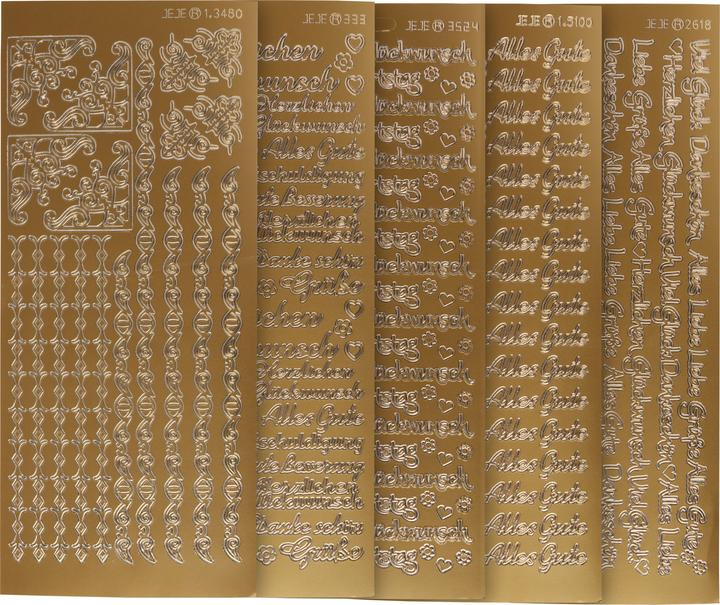 JEJE ® 1.3480
JEJE ® 333
chen
wunsch
Herzlichen
Glückwunsch
Alles Gute
schuldigung
te Besserung
Herzlichen
lückwunsch
Danke schön
Grüße
chen
wunsch
Herzlichen
Glückwunsch
Alles Gute
schuldigung
te Besserung
Herzlichen
lückwunsch
Danke schön
Grüße
JEJE ® 3524
lückwunsch
tstag
lückwunsch
tstag
lückwunsch
tstag
lückwunsch
tstag
lückwunsch
tstag
lückwunsch
tstag
lückwunsch
tstag
lückwunsch
tstag
lückwunsch
tstag
lückwunsch
tstag
JEJE ® 1.5100
Alles Gute
Alles Gute
Alles Gute
Alles Gute
Alles Gute
Alles Gute
Alles Gute
Alles Gute
Alles Gute
Alles Gute
Alles Gute
Alles Gute
Alles Gute
Alles Gute
Alles Gute
Alles Gute
Alles Gute
JEJE ® 2618
Viel Glück Dankeschön Alles Liebe Liebe Grüße Alles Gute
Herzlichen Glückwunsch Viel Glück Dankeschön Alles Liebe
Liebe Grüße Alles Gute Herzlichen Glückwunsch Viel Glück
Dankeschön Alles Liebe Liebe Grüße Alles Gute Dankeschön